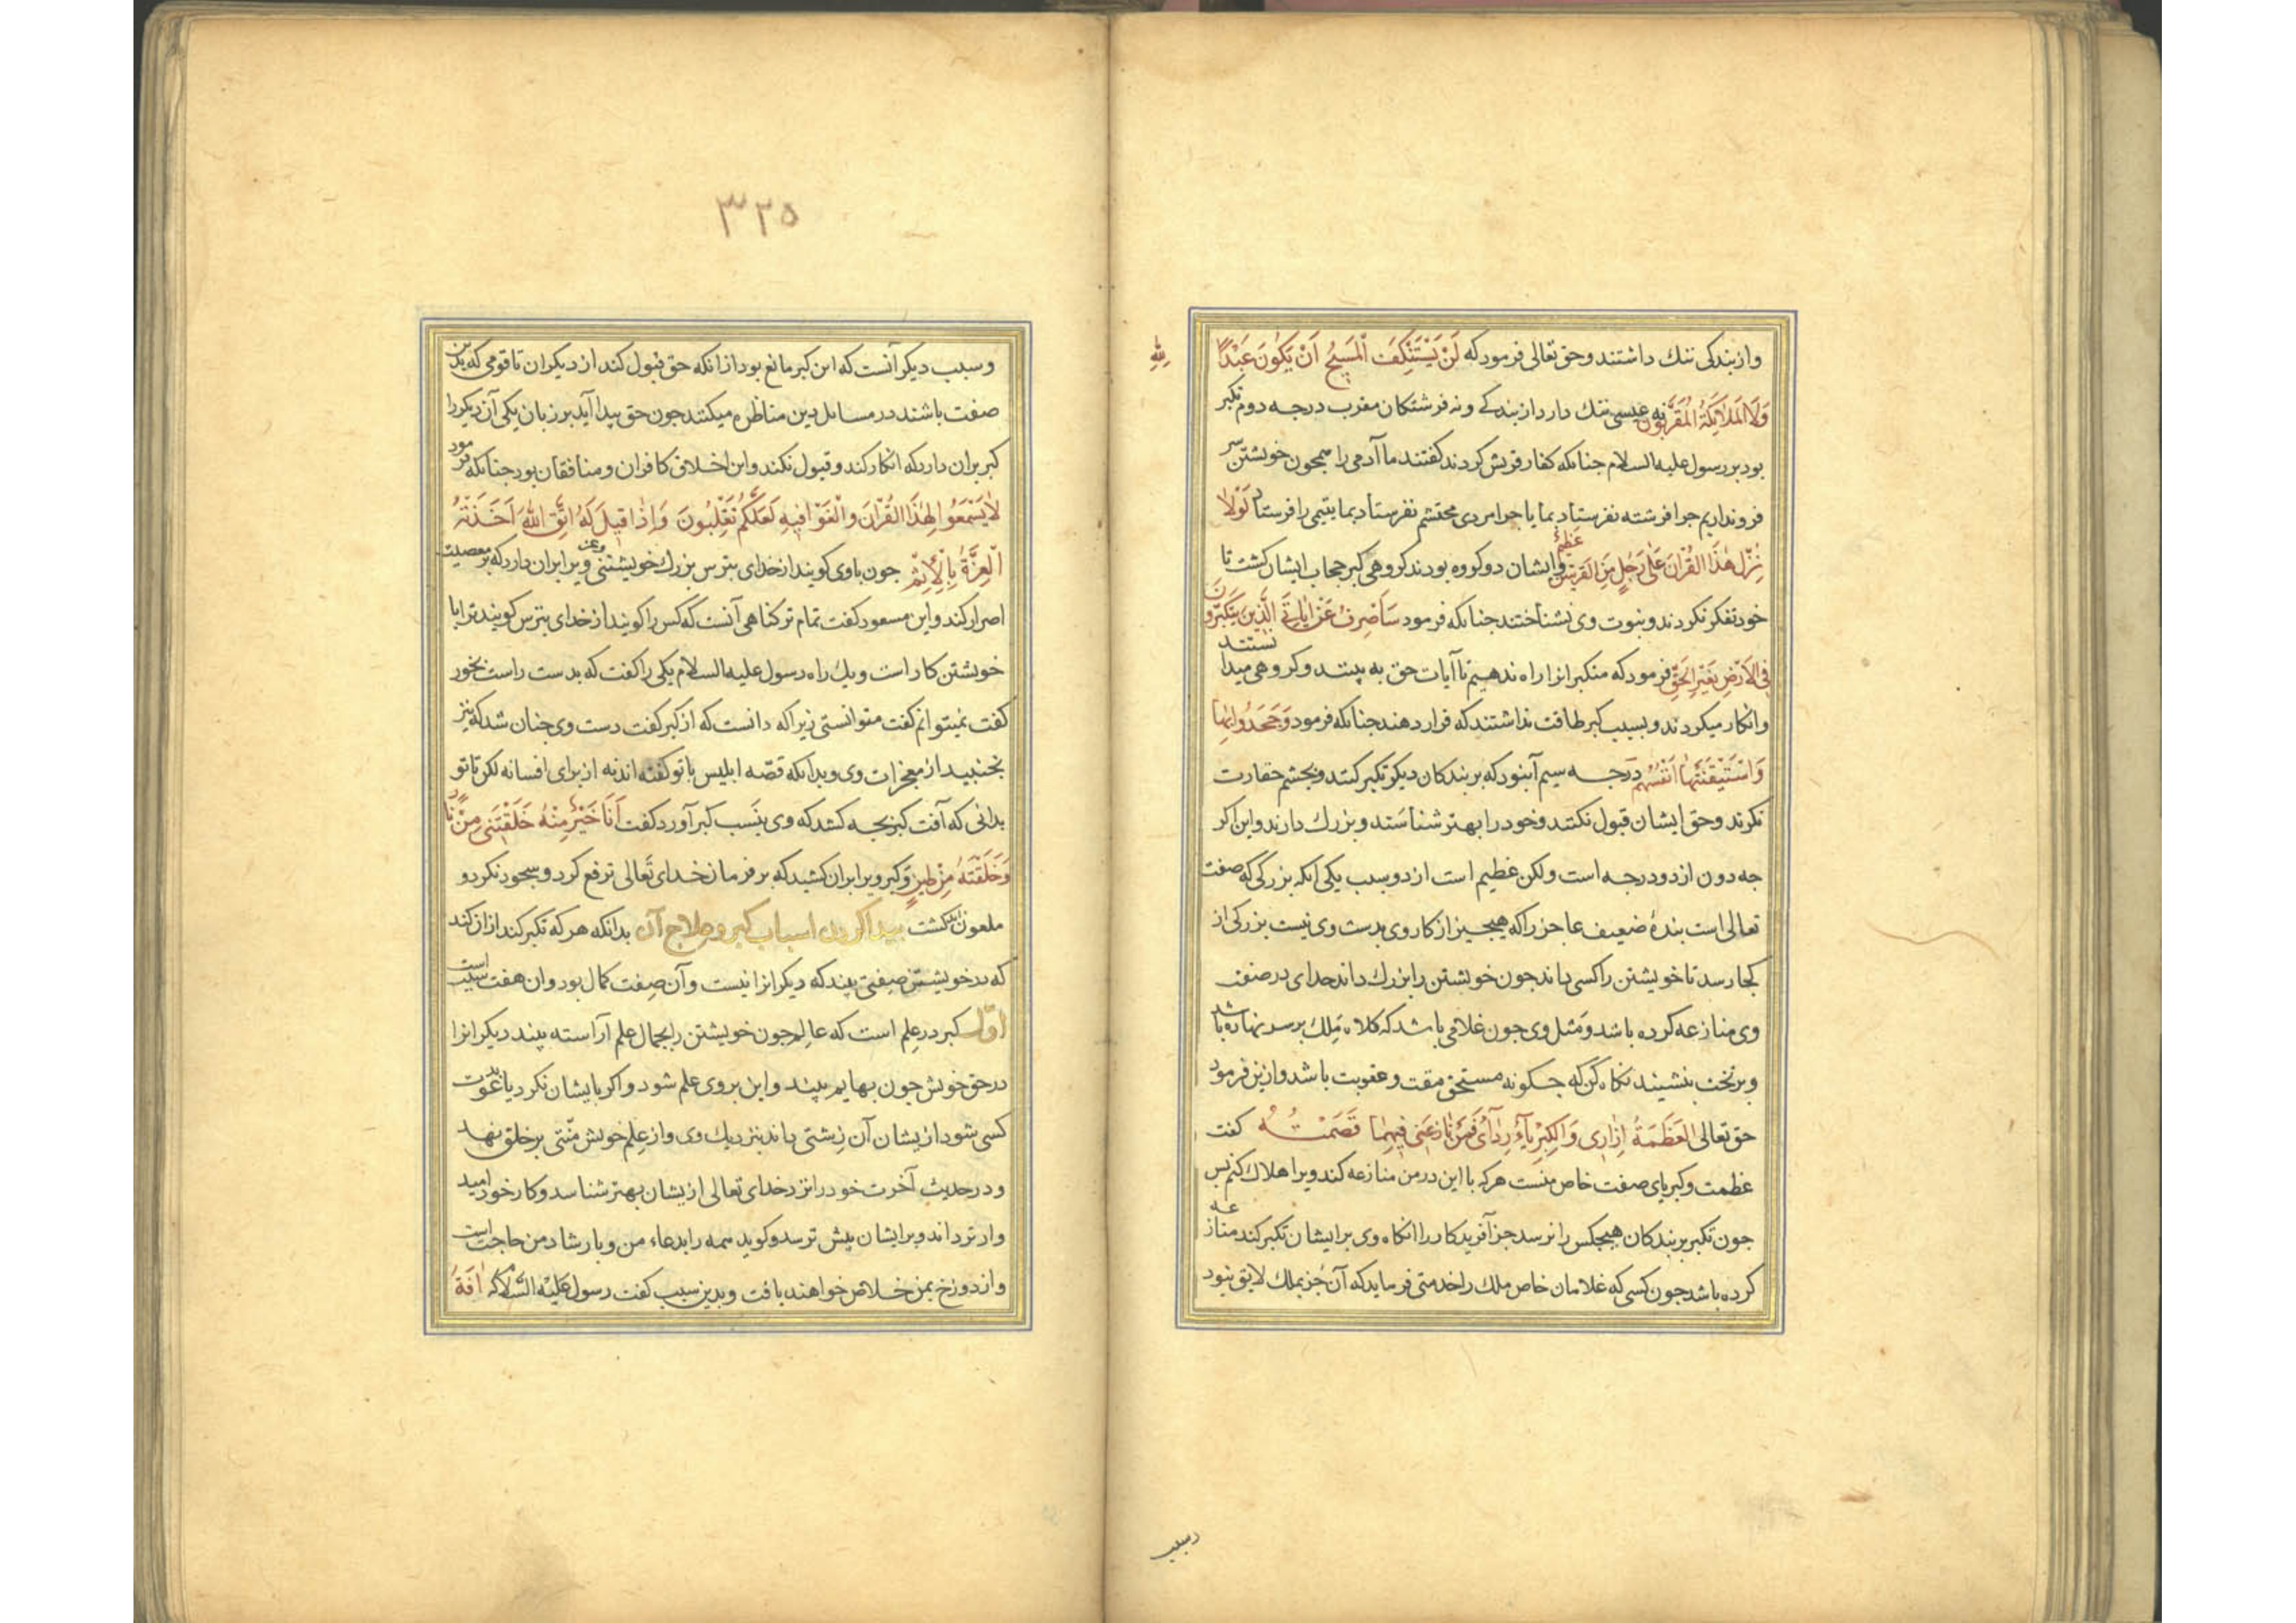 وازبندکی ننك داشتند وحق تعالی فرمود که لَنْ یَسْتَنْکِفَ الْمَسِیحُ اَنْ یَکُونَ عَبْدًا لِلّٰهِ
وَلَا الْمَلَائِکَةُ الْمُقَرَّبُونَ نه عیسی ننك دارد از بندکے ونه فرشتکان مقرب درجه دوم تکبر
بود بر رسول علیه السلام جنانکه کفار قریش کردند کفتند ما آدمی را همجون خویشتن سر
فرونداریم جرا فرشته نفرستاد بما یا جرا مردی محتشم نفرستاد بما یتیمی را فرستاد لَوْلَا
نُزِّلَ هٰذَا الْقُرْآنُ عَلٰی رَجُلٍ مِنَ الْقَرْیَتَیْنِ عَظِیمٌ وایشان دو کروه بودند کروهی کبر حجاب ایشان کشت تا
خود تفکر نکردند ونبوت وی نشناختند جنانکه فرمود سَاَصْرِفُ عَنْ اٰیَاتِیَ الَّذِینَ یَتَکَبَّرُونَ
فِی الْاَرْضِ بِغَیْرِ الْحَقِّ فرمود که متکبرانرا راه ندهیم تا آیات حق به بینند وکروهی میدانستند
وانکار میکردند وبسبب کبر طاقت نداشتند که قرار دهند جنانکه فرمود وَجَحَدُوا بِهَا
وَاسْتَیْقَنَتْهَا اَنْفُسُهُمْ درجه سیم آنبود که بربندکان دیکر تکبر کنند وبجشم حقارت
نکرند وحق ایشان قبول نکنند وخود را بهتر شناسند وبزرك دارند واین اکر
جه دون ازدو درجه است ولکن عظیم است از دو سبب یکی انکه بزرکی که صفت
تعالی است بندۀ ضعیف عاجز را که هیجیز از کار وی بدست وی نیست بزرکی از
کجا رسد تا خویشتن را کسی داند جون خویشتن را بزرك داند خدای در صفت
وی منازعه کرده باشد ومثل وی جون غلامی باشد که کلاه مَلِك برسر نهاده باشد
وبر تخت بنشیند نکاه کن که جکونه مستحق مقت وعقوبت باشد وازین فرمود
حق تعالی اَلْعَظَمَةُ اِزَارِی وَالْکِبْرِیَاءُ رِدَائِی فَمَنْ نَازَعَنِی فِیهِمَا قَصَمْتُهُ کفت
عظمت وکبریای صفت خاص منست هرکه با این در من منازعه کند ویرا هلاك کنم بس
جون تکبر بربندکان هیجکس را نرسد جز آفریدکار را انکاه وی بر ایشان تکبر کند منازعه
کرده باشد جون کسی که غلامان خاص ملك را خدمتی فرماید که آن جز بملك لایق نبود
وسبب
۳۲۵
وسبب دیکر آنست که این کبر مانع بود از انکه حق قبول کند از دیکران تا قومی که بدین
صفت باشند در مسایل دین مناظره میکنند جون حق پیدا آید بر زبان یکی آن دیکر را
کبر بران دارد که انکار کند وقبول نکند واین اخلاق کافران ومنافقان بود جنانکه فرمود
لَا تَسْمَعُوا لِهٰذَا الْقُرْآنِ وَالْغَوْا فِیهِ لَعَلَّکُمْ تَغْلِبُونَ وَاِذَا قِیلَ لَهُ اتَّقِ اللّٰهَ اَخَذَتْهُ
الْعِزَّةُ بِالْاِثْمِ جون باوی کویند از خدای بترس بزرك خویشتنی وعز ویرا بران دارد که بر معصیت
اصرار کند وابن مسعود کفت تمام تر کناهی آنست که کس را کویند از خدای بترس کوید ترا با
خویشتن کار است ویك راه رسول علیه السلام یکی را کفت که بدست راست بخور
کفت نمیتوانم کفت متوانستی زیرا که دانست که از کبر کفت دست وی جنان شد که نیز
نجنبید از معجزات وی وبدانکه قصّه ابلیس باتو کفته اند نه از برای افسانه لکن تا تو
بدانی که آفت کبر بجه کشد که وی بنسب کبر آورد کفت اَنَا خَیْرٌ مِنْهُ خَلَقْتَنِی مِنْ نَارٍ
وَخَلَقْتَهُ مِنْ طِینٍ وکبر ویرا بران کشید که بر فرمان خدای تَعالی ترفع کرد وسجود نکرد و
ملعون ابد کشت پیدا کردن اسباب کبر وعلاج آن بدانکه هرکه تکبر کند ازان کند
که در خویشتن صفتی بیند که دیکرانرا نیست وآن صِفت کمال بود وان هفت سبب است
اوّل کبر در عِلم است که عالِم جون خویشتن را بجمال علم آراسته بیند دیکرانرا
در حق خویش جون بهایم بیند واین بروی علم شود واکر بایشان نکرد یا بدعوت
کسی شود ازیشان آن زشتی داند بنزدیك وی واز عِلم خویش منّتی بر خلق نهد
ودر حدیث آخرت خود را نزد خدای تعالی ازیشان بهتر شناسد وکار خود امید
وارتر داند وبر ایشان بیش ترسد وکوید همه را بدعاء من وبارشاد من حاجت است
واز دوزخ بمن خلاص خواهند یافت وبدین سبب کفت رسول عَلَیْهِ السَّلَام که اٰفَةُ